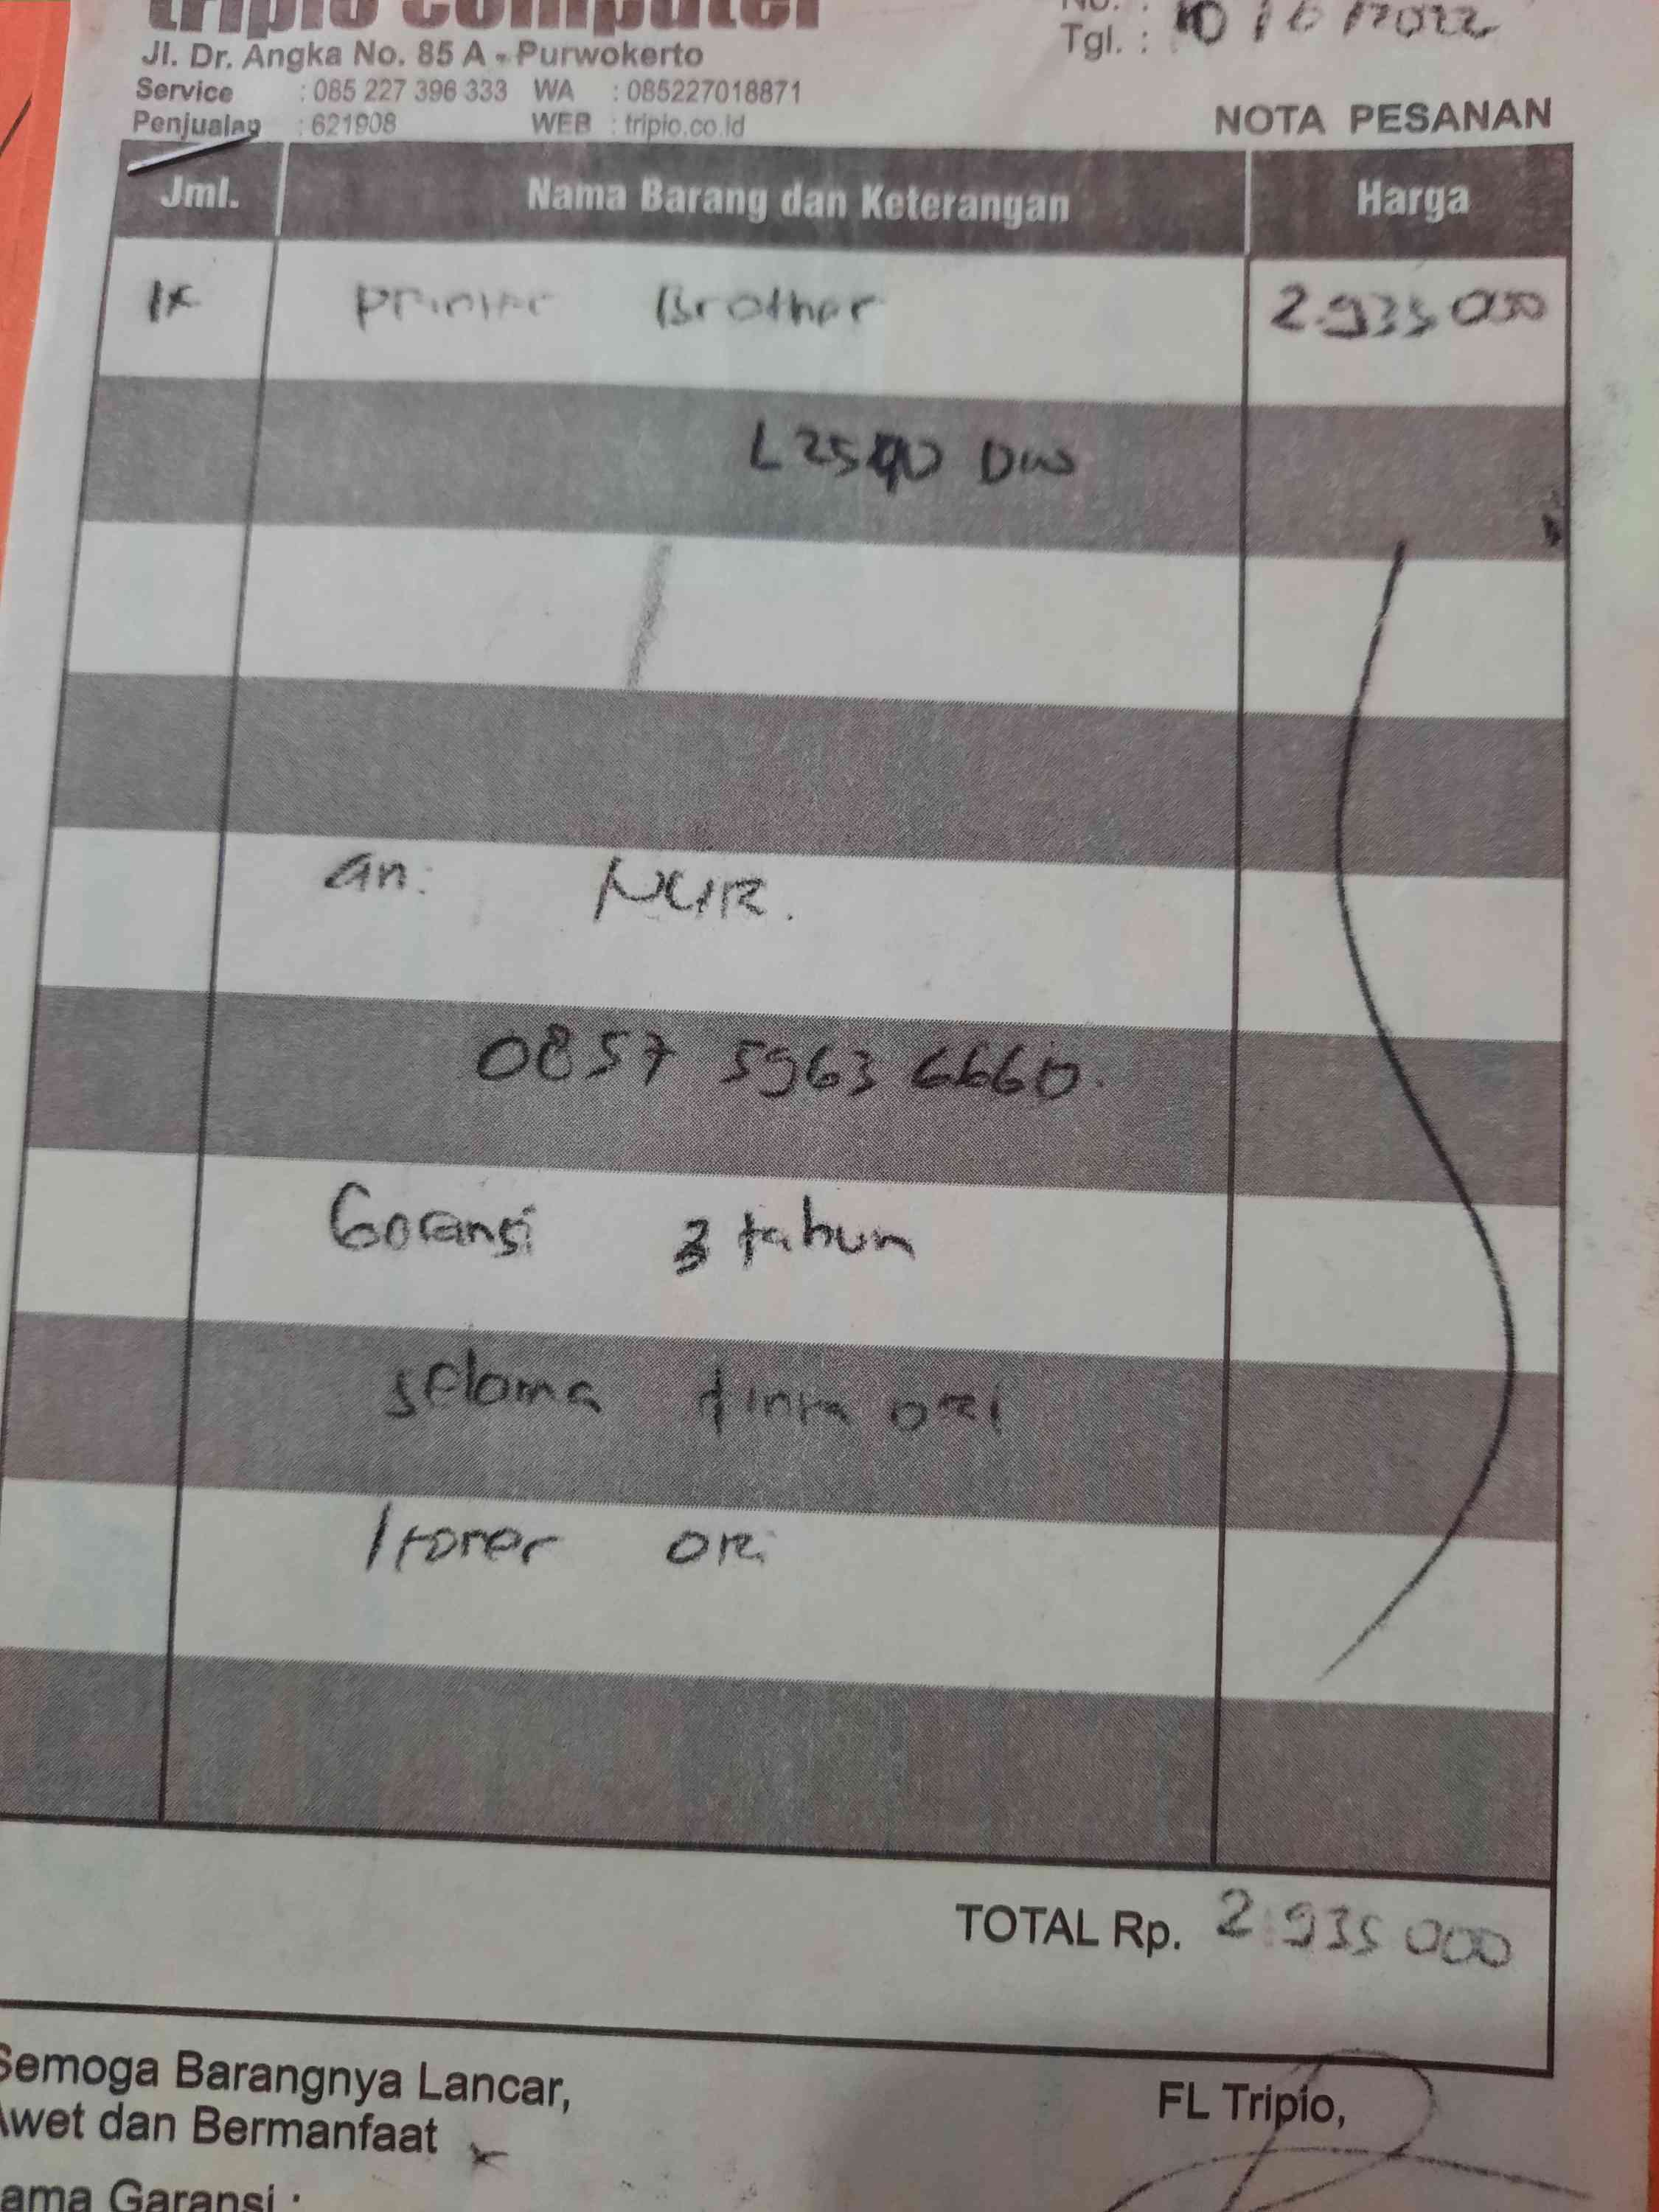 tripio computer
No. :
Tgl. : 10 / 6 / 2022
Jl. Dr. Angka No. 85 A - Purwokerto
Service : 085 227 396 333 WA : 085227018871
Penjualan : 621908 WEB : tripio.co.id
NOTA PESANAN
Jml. Nama Barang dan Keterangan Harga
1x Printer Brother 2.935 000
L2540 DW
an. NUR.
0857 5963 6660.
Goransi 3 tahun
selama tinta ori
/ toner ori
TOTAL Rp. 2.935 000
Semoga Barangnya Lancar,
Awet dan Bermanfaat
FL Tripio,
Lama Garansi :